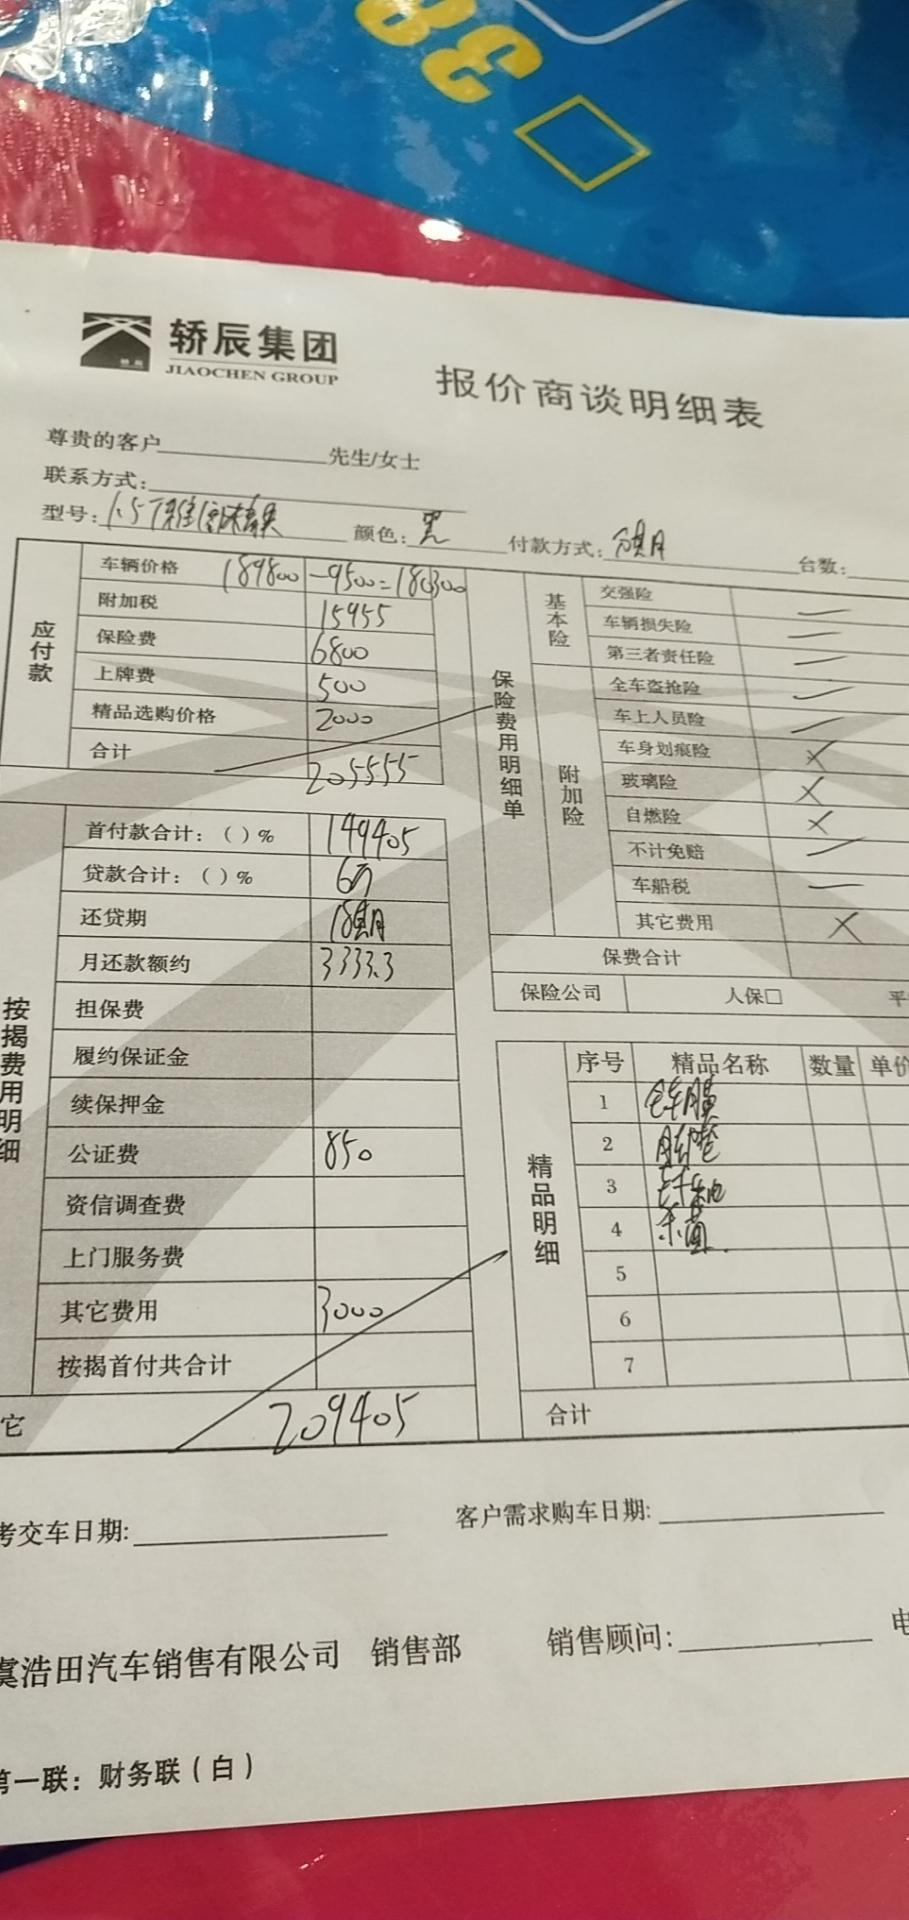 38
轿辰集团
JIAOCHEN GROUP
报价商谈明细表
尊贵的客户 先生/女士
联系方式:
型号: 1.5T 颜色: 黑 付款方式: 台数:
应付款
车辆价格 189800 -9500=180300
附加税 15955
保险费 6800
上牌费 500
精品选购价格 2000
合计 205555
保险费用明细单
基本险
交强险
车辆损失险
第三者责任险
附加险
全车盗抢险
车上人员险
车身划痕险 ×
玻璃险 ×
自燃险 ×
不计免赔
车船税
其它费用 ×
保费合计
保险公司 人保□ 平
按揭费用明细
首付款合计: ( ) % 149405
贷款合计: ( ) % 6万
还贷期 18
月还款额约 3333.3
担保费
履约保证金
续保押金
公证费 850
资信调查费
上门服务费
其它费用 3000
按揭首付共合计
它 209405
精品明细
序号 精品名称 数量 单价
1 全车膜
2
3
4
5
6
7
合计
考交车日期: 客户需求购车日期:
虞浩田汽车销售有限公司 销售部 销售顾问: 电
第一联: 财务联 ( 白 )